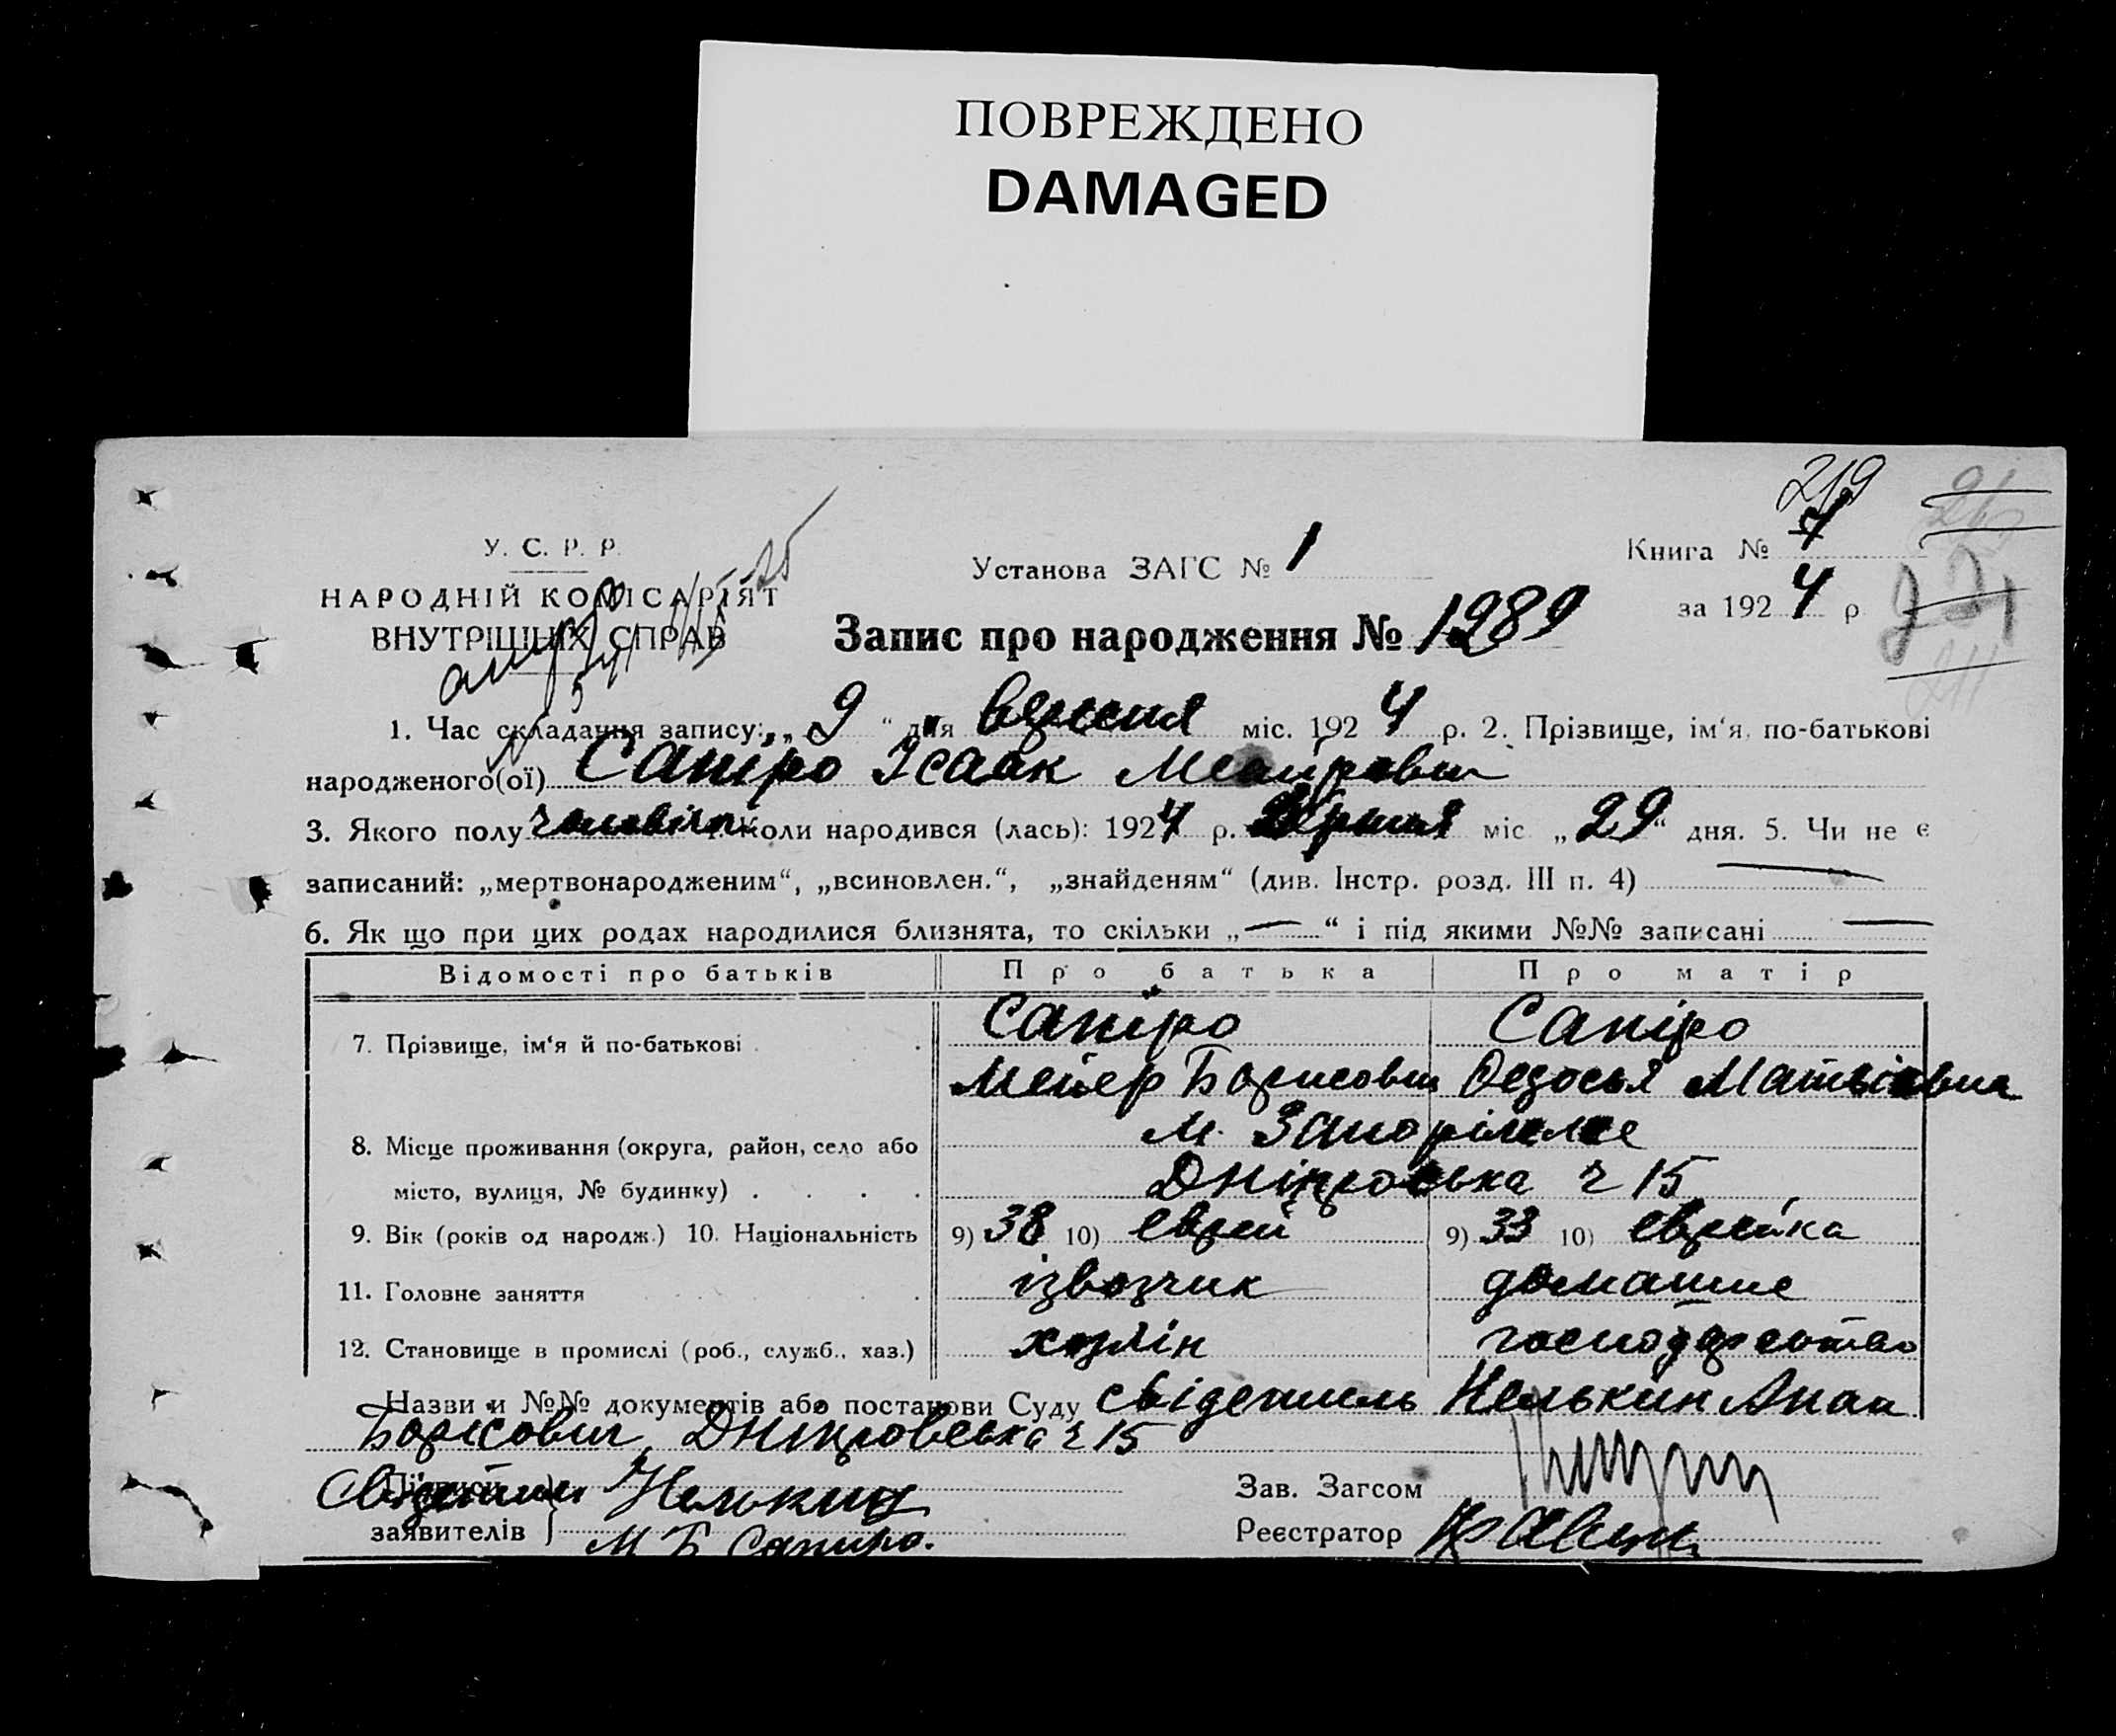 ПОВРЕЖДЕНО
DAMAGED
219
У. С. Р. Р.
НАРОДНІЙ КОМІСАРІЯТ
ВНУТРІШНІХ СПРАВ
Установа ЗАГС № 1
Книга № 7
за 1924 р
Запис про народження № 1289
1. Час складання запису: „9“ дня вересня міс. 1924 р. 2. Прізвище, ім‘я, по-батькові
народженого(ої) Сапіро Ісаак
3. Якого полу Коли народився (лась): 1924 р. міс „29“ дня. 5. Чи не є
записаний: „мертвонародженим“, „всиновлен.“, „знайденям“ (див. Інстр. розд. III п. 4) —
6. Як що при цих родах народилися близнята, то скільки „—“ і під якими №№ записані —
Відомості про батьків Про батька Про матір
7. Прізвище, ім‘я й по-батькові Сапіро Сапіро
Мейер Борисович
8. Місце проживання (округа, район, село або м. Запоріжже
місто, вулиця, № будинку) . . . . Дніпровська ч 15
9. Вік (років од народж.) 10. Національність 9) 38 10) еврей 9) 33 10) еврейка
11. Головне заняття ізвозчик домашне
12. Становище в промислі (роб., служб., хаз.) хазяїн господарство
Назви и №№ документів або постанови Суду свідетиль Нелькин
Борісович, Дніпровська ч 15
Підписи Нелькин
Зав. Загсом
заявителів М Б Сапиро.
Реєстратор